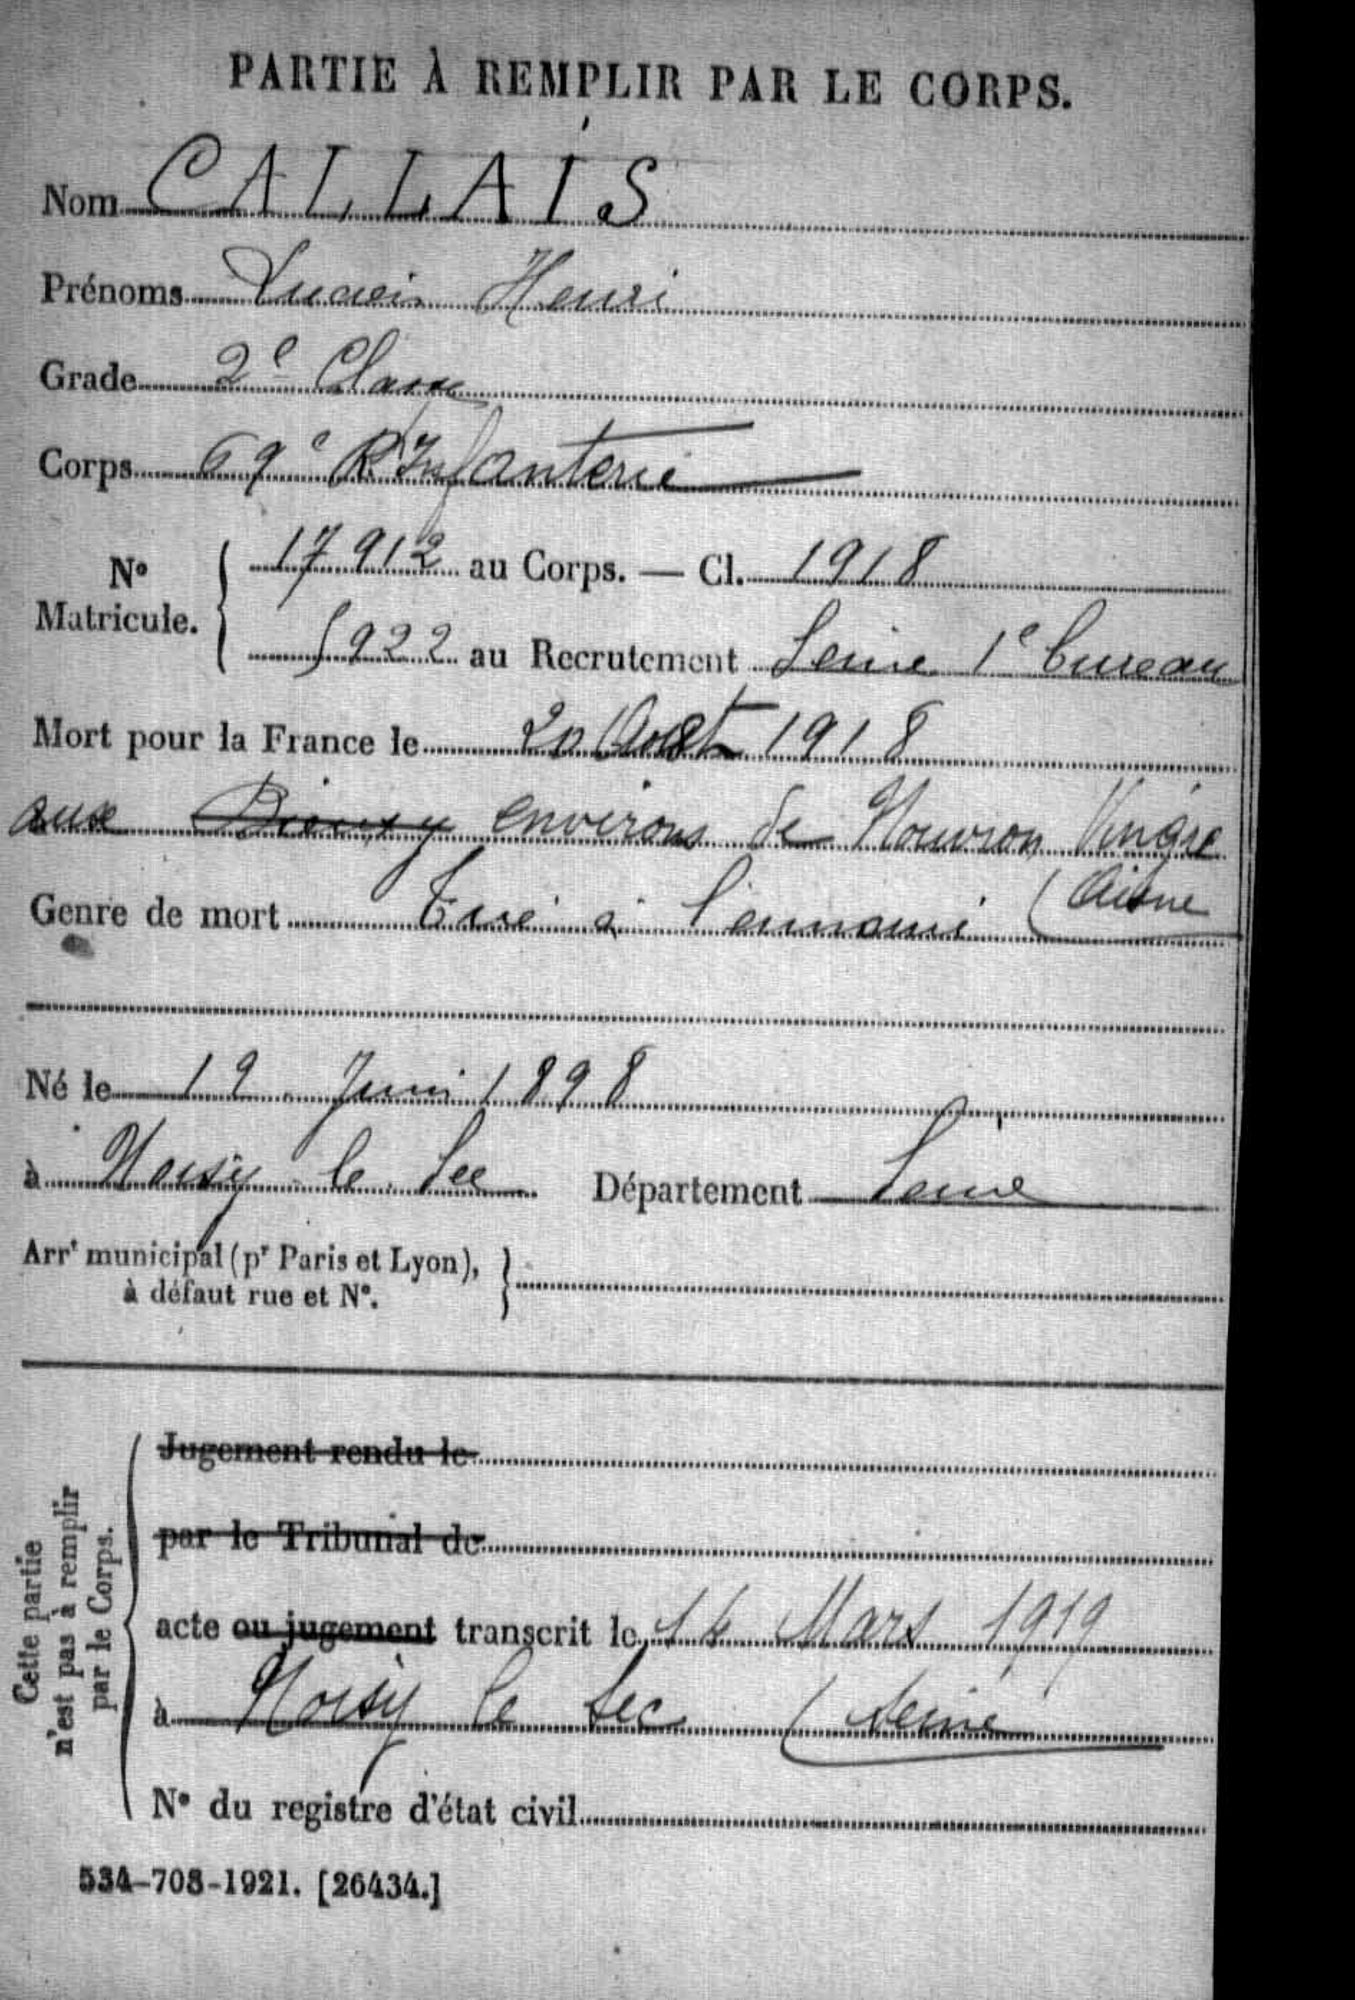 PARTIE À REMPLIR PAR LE CORPS.
Nom CALLAIS
Prénoms Lucien Henri
Grade 2e Classe
Corps 69e R. Infanterie
No Matricule. 17 912 au Corps. — Cl. 1918
5922 au Recrutement Seine 1e bureau
Mort pour la France le 20 Août 1918
aux environs de Nouvron Vingré
(Aisne
Genre de mort Tué à l'ennemi
Né le 12 Juin 1898
à Noisy le Sec Département Seine
Arrt municipal (pr Paris et Lyon),
à défaut rue et No.
Cette partie
n'est pas à remplir
par le Corps.
Jugement rendu le
par le Tribunal de
acte ou jugement transcrit le 14 Mars 1919
à Noisy le Sec (Seine
No du registre d'état civil
534-708-1921. [26434.]